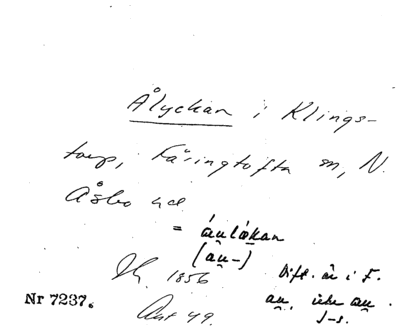 Ålyckan i Klings-
torp, Färingtofta sn, N.
Åsbo hd
= áulǽkan
(âu-)
1856
Dift. är i F.
au, icke au.
Nr 7237.
Ant 49.